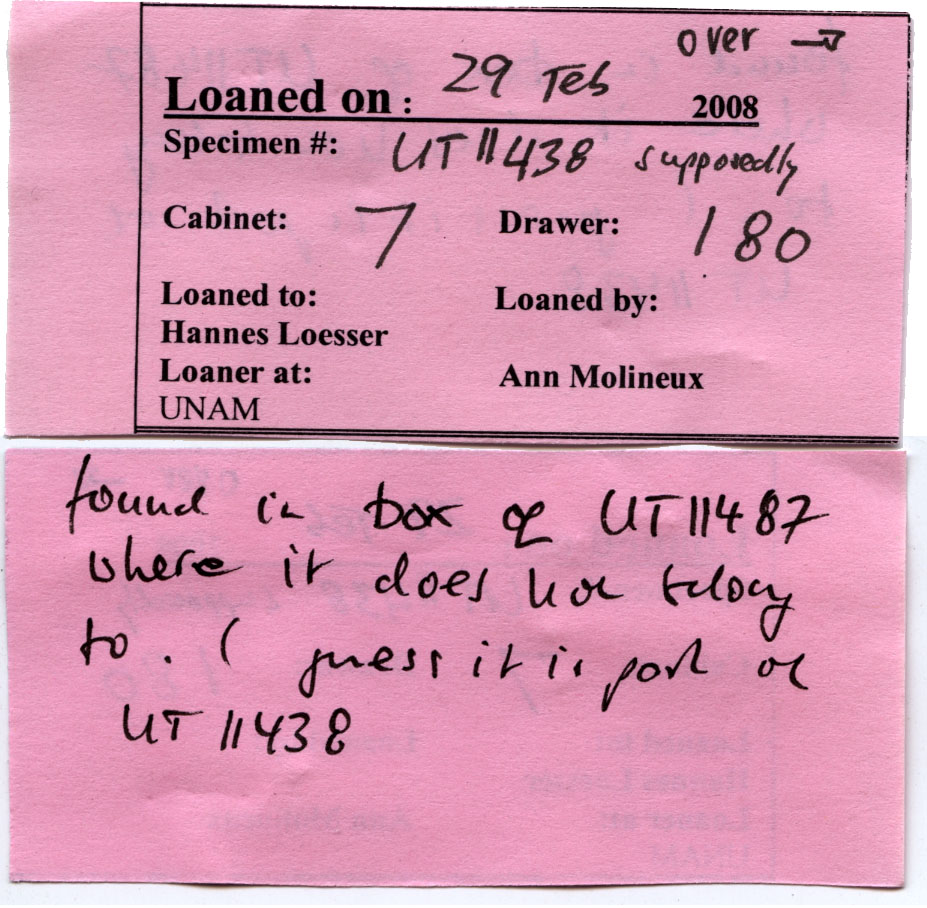 over →
Loaned on : 29 Feb 2008
Specimen #: UT11438 supposedly
Cabinet: 7 Drawer: 180
Loaned to: Loaned by:
Hannes Loesser
Loaner at: Ann Molineux
UNAM
found in box of UT11487
where it does not belong
to. I guess it is part of
UT 11438